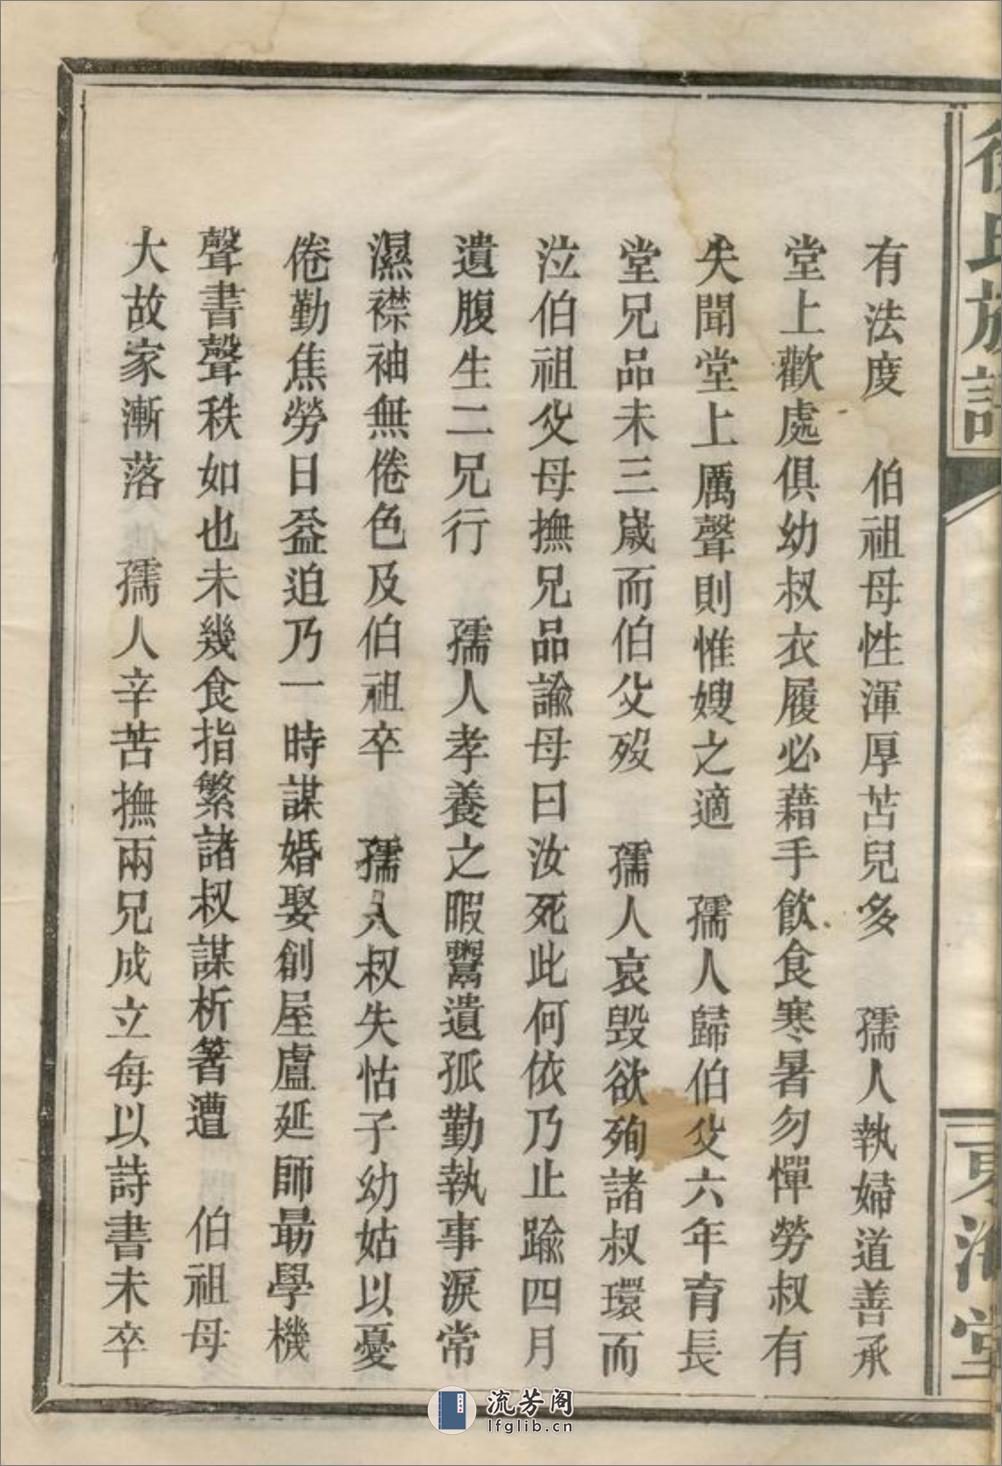 徐氏族譜
東海堂
有法度 伯祖母性渾厚苦兒多 孺人執婦道善承
堂上歡處俱幼叔衣履必藉手飲食寒暑勿憚勞叔有
失聞堂上厲聲則惟嫂之適 孺人歸伯父六年育長
堂兄品未三歲而伯父歿 孺人哀毀欲殉諸叔環而
泣伯祖父母撫兄品諭母曰汝死此何依乃止踰四月
遺腹生二兄行 孺人孝養之暇鬻遺孤勤執事淚常
濕襟袖無倦色及伯祖卒 孺人叔失怙子幼姑以憂
倦勤焦勞日益迫乃一時謀婚娶創屋盧延師最學機
聲書聲秩如也未幾食指繁諸叔謀析箸遭 伯祖母
大故家漸落 孺人辛苦撫兩兄成立每以詩書未卒
流芳阁
lfglib.cn